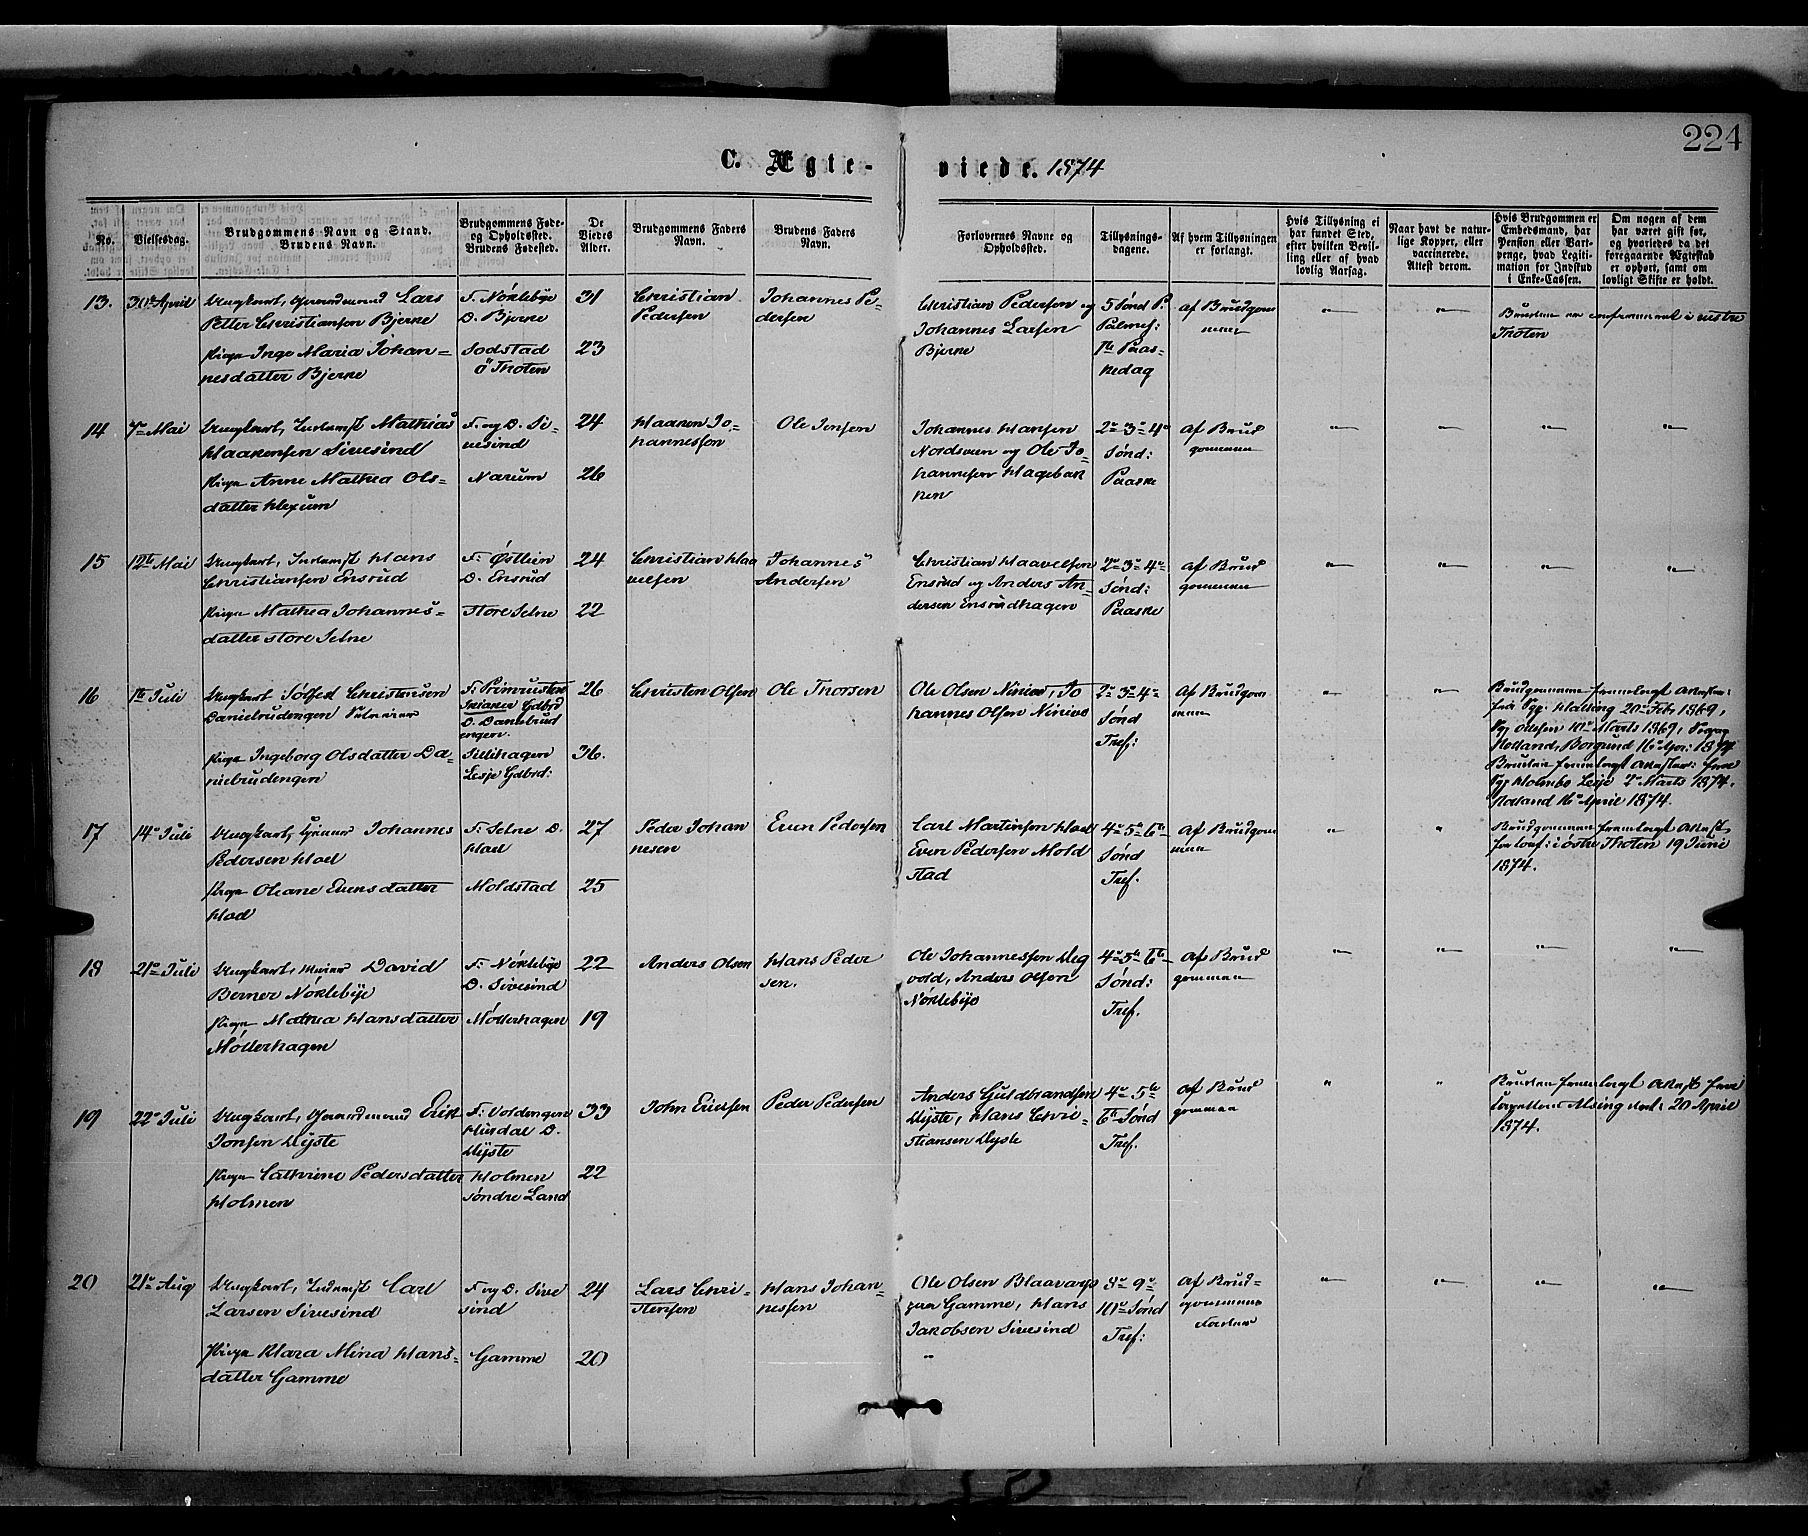 224
C. Ægte-
viede. 1874
No.
Vielsesdag.
Brudgommens Navn og Stand.
Brudens Navn.
Brudgommens Føde-
og Opholdssted.
Brudens Fødested.
De
Viedes
Alder.
Brudgommens Faders
Navn.
Brudens Faders
Navn.
Forlovernes Navne og
Opholdssted.
Tillysnings-
dagene.
Af hvem Tillysningen
er forlangt.
Hvis Tillysning ei
har fundet Sted,
efter hvilken Bevil-
ling eller af hvad
lovlig Aarsag.
Naar havt de natur-
lige Kopper, eller
vaccinerede.
Attest derom.
Hvis Brudgommen er
Embedsmand, har
Pension eller Vart-
penge, hvad Legiti-
mation for Indskud
i Enke-Cassen.
Om nogen af dem
har været gift før,
og hvorledes da det
foregaaende Ægteskab
er ophørt, samt om
lovligt Skifte er holdt.
13. 30te April
Ungkarl, Gaardmand Lars
Petter Christiansen Bjerke
Pige Inge Maria Johan=
nesdatter Bjerke
F. Nøklebye
O. Bjerke
Sodstad
Ø Thoten
31
23
Christian
Pedersen
Johannes Pe-
dersen
Christian Pedersen og
Johannes Larsen
Bjerke
5 Sønd P.
Palmes:
1te Paas-
kedag
af Brudgom
men
" "
Bruden er confirmeret i vestre
Thoten
14 7de Mai
Ungkarl, Inderst Mathias
Haakensen Sivesind
Pige Anne Mathea Ols-
datter Hexum
F. og O. Si-
vesind
Narum
24
26
Haaken Jo=
hannessen
Ole Jensen
Johannes Hansen
Nordsveen og Ole Jo=
hannesen Hagebak
ken
2de 3de 4de
Sønd:
Paaske
af Brud
gommen
" " " "
15 12te Mai
Ungkarl, Inderst Hans
Christiansen Ensrud
Pige Mathea Johannes=
datter store Selne
F. Østlien
O. Ensrud
Store Selne
24
22
Christian Haa
velsen
Johannes
Andersen
Christian Haavelsen
Ensrud og Anders An-
dersen Ensrudhagen
2de 3de 4de
Sønd:
Paaske
af Brud
gommen
" " " "
16 1te Juli
Ungkarl Sølfest Christensen
Danielrudengen
Pige Ingeborg Olsdatter Da-
nielrudengen
F:
Skiaker Gdbrd
O. Danielrud
engen.
Lesje Gdbrd:
26
36.
Christen Olsen
Ole Thorsen
Ole Olsen Ninive, Jo
hannes Olsen Ninive
2de 3de 4de
Sønd
Tref:
af Brudgom
men
" "
Brudgommen fremlagt Attester:
fra Sgp. Halling 20de Feb. 1869,
10de Marts 1869,
Holland, Borgund 16de Apr: 1874
Bruden fremlagt Attester: fra
Sgp Holmbo Lesje 2de Marts 1874.
Holland 16de April 1874.
17 14de Juli
Ungkarl, Johannes
Pedersen Hoel
Pige Oleane Evensdatter
Hoel
F: Selne O.
Hoel
Moldstad
27
25
Peder Johan
nesen
Even Pedersen
Carl Martinsen Hoel
Even Pedersen Mold
stad
4de 5te 6te
Sønd
Tref.
af Brudgom
men
" "
Brudgommen fremlagt Attest
fra Conf: i østre Thoten 19 Juni
1874.
18 21de Juli
Ungkarl, Murer David
Berner Nøklebye
Pige Mathea Hansdatter
Møllerhagen
F: Nøklebye
O. Sivesind
Møllerhagen
22
19
Anders Olsen
Hans Peder
sen.
Ole Johannessen Alg
vold, Anders Olsen
Nøklebye
4de 5te 6te
Sønd:
Tref.
af Brud
gommen
" " " "
19 22de Juli
Ungkarl, Gaardmand Erik
Jonsen Dyste
Pige Cathrine Pedersdatter
Holmen
F: Voldengen
Hurdal O.
Dyste
Holmen
Søndre Land
33
22
John Ericsen
Peder Pedersen
Anders Guldbrandsen
Dyste, Hans Chri-
stiansen Dyste
4de 5te
6te Sønd
Tref.
af Brud
gommen
" "
Bruden fremlagt Attest fra
20 April
1874.
20 21de Aug
Ungkarl, Inderst Carl
Larsen Sivesind
Pige Klara Mina Hans-
datter Gamme
F. og O. Sive
sind
Gamme
24
20
Lars Chri-
stensen
Hans Johan-
nessen
Ole Olsen Blaavarp
Gamme, Hans
Jakobsen Sivesind
"
8de 9de
10de Sønd
Tref:
af Brud=
gommens
" " " "